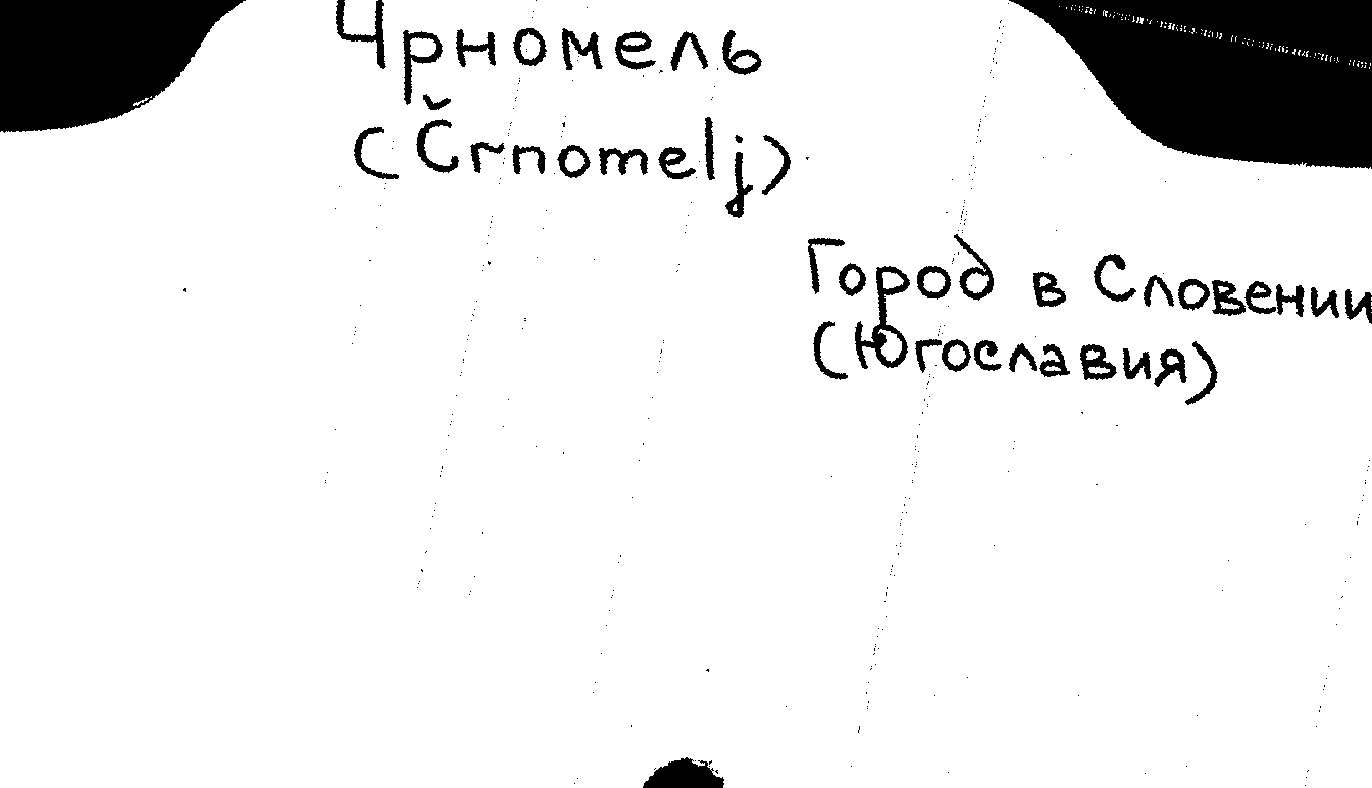 Чрномель
(Črnomelj)
Город в Словении
(Югославия)